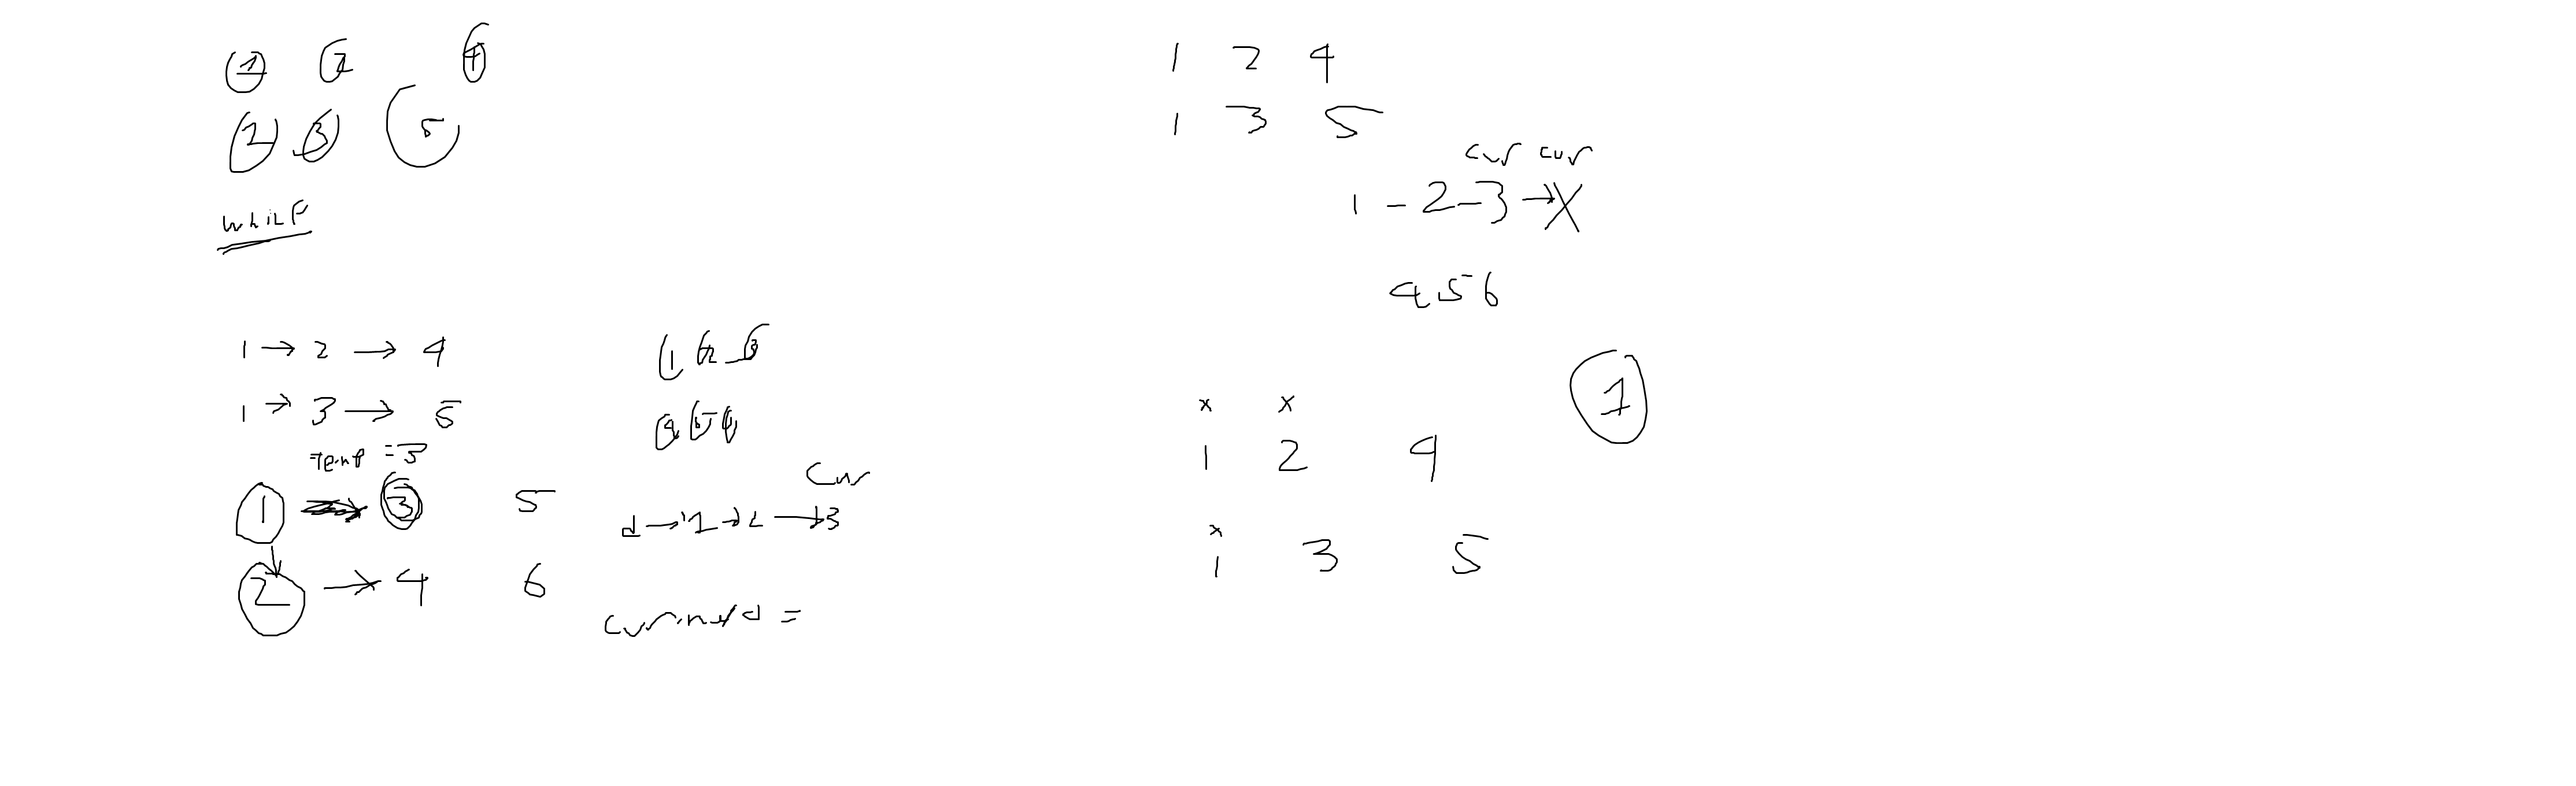 1 2 4
2 3 5
while
1 → 2 → 4
1 → 3 → 5
Temp = 3
1 → 3 5
2 → 4 6
1 2 3
4 5 6
cur
d → 1 → 2 → 3
1 2 4
1 3 5
cur cur
1 - 2 - 3 → X
4 5 6
1
x x
1 2 4
x
1 3 5